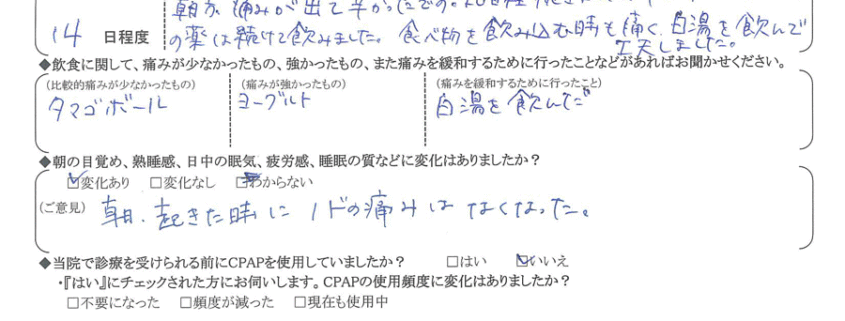 朝が痛みが出て辛かったです。
14 日程度 の薬は続けて飲みました。食べ物を飲み込む時も痛く、白湯を飲んで
工夫しました。
◆飲食に関して、痛みが少なかったもの、強かったもの、また痛みを緩和するために行ったことなどがあればお聞かせください。
(比較的痛みが少なかったもの) (痛みが強かったもの) (痛みを緩和するために行ったこと)
タマゴボール ヨーグルト 白湯を飲んだ
◆朝の目覚め、熟睡感、日中の眠気、疲労感、睡眠の質などに変化はありましたか?
☑変化あり □変化なし □わからない
(ご意見) 朝、起きた時にノドの痛みはなくなった。
◆当院で診療を受けられる前にCPAPを使用していましたか? □はい ☑いいえ
・『はい』にチェックされた方にお伺いします。CPAPの使用頻度に変化はありましたか?
□不要になった □頻度が減った □現在も使用中